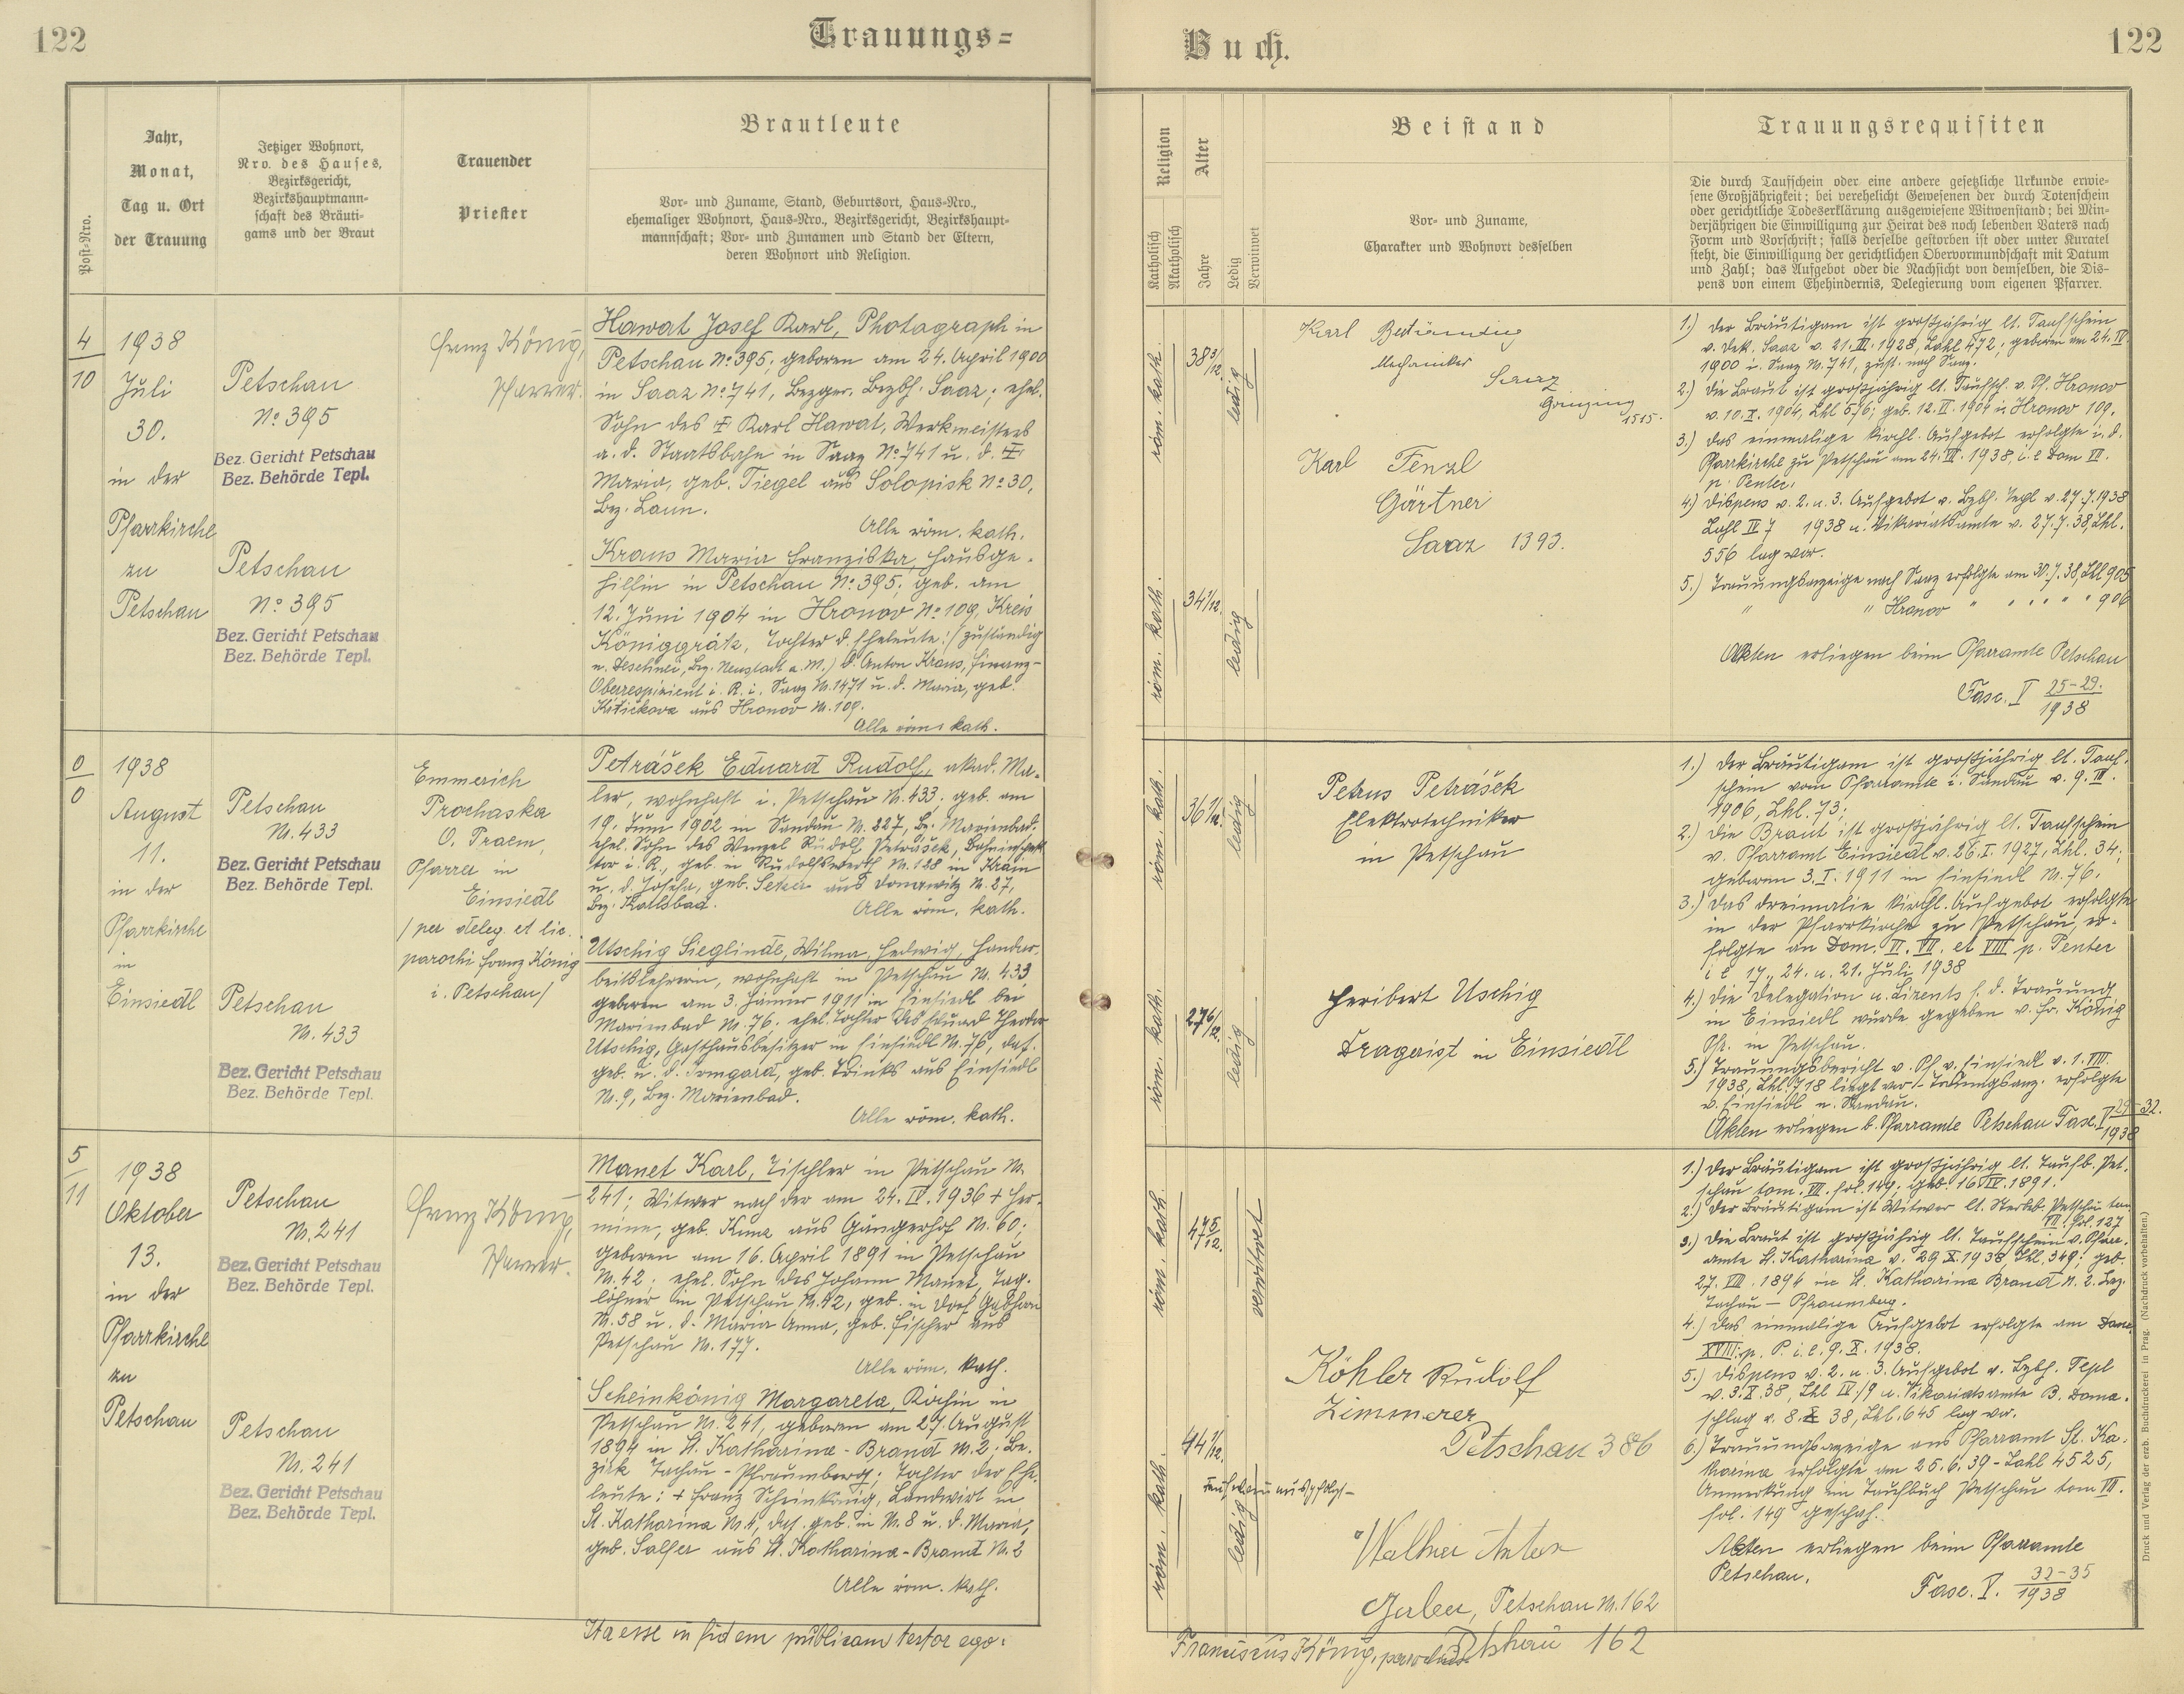 122
Trauungs=
Buch.
122
Post-Nro.
Jahr,
Monat,
Tag u. Ort
der Trauung
Jetziger Wohnort,
Nro. des Hauses,
Bezirksgericht,
Bezirkshauptmann-
schaft des Bräuti-
gams und der Braut
Trauender
Priester
Brautleute
Vor- und Zuname, Stand, Geburtsort, Haus-Nro.,
ehemaliger Wohnort, Haus-Nro., Bezirksgericht, Bezirkshaupt-
mannschaft; Vor- und Zunamen und Stand der Eltern,
deren Wohnort und Religion.
Religion
Katholisch
Akatholisch
Alter
Jahre
Ledig
Verwitwet
Beistand
Vor- und Zuname,
Charakter und Wohnort desselben
Trauungsrequisiten
Die durch Taufschein oder eine andere gesetzliche Urkunde erwie-
sene Großjährigkeit; bei verehelicht Gewesenen der durch Totenschein
oder gerichtliche Todeserklärung ausgewiesene Witwenstand; bei Min-
derjährigen die Einwilligung zur Heirat des noch lebenden Vaters nach
Form und Vorschrift; falls derselbe gestorben ist oder unter Kuratel
steht, die Einwilligung der gerichtlichen Obervormundschaft mit Datum
und Zahl; das Aufgebot oder die Nachsicht von demselben, die Dis-
pens von einem Ehehindernis, Delegierung vom eigenen Pfarrer.
4
10
1938
Juli
30.
in der
Pfarrkirche
zu
Petschau
Petschau
No. 395
Bez. Gericht Petschau
Bez. Behörde Tepl.
Petschau
No. 395
Bez. Gericht Petschau
Bez. Behörde Tepl.
Franz König,
Pfarrer.
Hawat Josef Karl, Photograph in
Petschau No. 395; geboren am 24. April 1900
in Saaz No. 741, Bezger. Bezbh. Saaz; ehel.
Sohn des ‡ Karl Hawat, Werkmeisters
a. d. Staatsbahn in Saaz No. 741 u. d. ‡
Maria, geb. Tiegel aus Solopisk No. 30,
Bez. Laun.
Alle röm. kath.
Kraus Maria Franziska, Hausge-
hilfin in Petschau No. 395; geb. am
12. Juni 1904 in Hronov No. 109, Kreis
Königgrätz, Tochter d. Eheleute: /zuständig
n. Deschnei, Bz. Neustadt a. M./ d. Anton Kraus, Finanz-
Oberrespizient i. R. i. Saaz N. 1471 u. d. Maria, geb.
aus Hronov N. 109.
Alle röm. kath.
röm. kath.
38 3/12.
ledig
röm. kath.
34 1/12.
ledig
Karl
Mechaniker
Saaz
1515.
Karl Fenzl
Gärtner
Saaz 1393.
1.) Der Bräutigam ist großjährig lt. Taufschein
v. Dek. Saaz v. 21. III. 1928, Zahl 472; geboren am 24. IV.
1900 i. Saaz N. 741, zust. nach Saaz.
2.) Die Braut ist großjährig lt. Taufsch. v. Pf. Hronov
v. 10. X. 1904, Zhl 576; geb. 12. VI. 1904 in Hronov 109.
3.) Das einmalige kirchl. Aufgebot erfolgte i. d.
Pfarrkirche zu Petschau am 24. VII. 1938, i. e Dom VII.
p. Pentec.
4.) Dispens v. 2. u. 3. Aufgebot v. Bzbh. Tepl v. 27.7.1938
Zahl IV 7 1938 u. Vikariatsamte v. 27.7.38, Zhl.
556 lag vor.
5.) Trauungsanzeige nach Saaz erfolgte am 30.7.38, Zhl 905
" " Hronov " " " " " 906
Akten erliegen beim Pfarramte Petschau
Fasc. V 25-29.
1938
0
0
1938
August
11.
in der
Pfarrkirche
in
Einsiedl
Petschau
N. 433
Bez. Gericht Petschau
Bez. Behörde Tepl.
Petschau
N. 433
Bez. Gericht Petschau
Bez. Behörde Tepl.
Emmerich
Prochaska
O. Praem,
Pfarre in
Einsiedl
/per deleg. et lic.
parochi Franz König
i. Petschau/
Petrášek Eduard Rudolf, akad. Ma-
ler, wohnhaft i. Petschau N. 433; geb. am
19. Juni 1902 in Sandau N. 227, Bz. Marienbad;
ehel. Sohn des Wenzel Rudolf Petrášek, Bahninspek-
tor i. R., geb. in Rudolfswerth N. 188 in Krain
u. d. Josefa, geb. aus Donawitz N. 27,
Bz. Karlsbad.
Alle röm. kath.
Utschig Sieglinde, Wilma, Hedwig, Handar-
beitslehrerin, wohnhaft in Petschau N. 433
geboren am 3. Jänner 1911 in Einsiedl bei
Marienbad N. 76; ehel. Tochter des Eduard Theodor
Utschig, Gasthausbesitzer in Einsiedl N. 76, das.
geb. u. d. Irmgard, geb. Trinks aus Einsiedl
N. 9, Bez. Marienbad.
Alle röm. kath.
röm. kath.
36 1/12.
ledig
röm. kath.
27 6/12.
ledig
Petrus Petrášek
Elektrotechniker
in Petschau
Heribert Uschig
Drogerist in Einsiedl
1.) Der Bräutigam ist großjährig lt. Tauf-
schein vom Pfarramte i. Sandau v. 9. III.
1906, Zhl. 73;
2.) Die Braut ist großjährig lt. Taufschein
v. Pfarramt Einsiedl v. 26. I. 1927, Zhl. 34;
geboren 3. I. 1911 in Einsiedl N. 76.
3.) Das dreimalie kirchl. Aufgebot erfolgte
in der Pfarrkirche zu Petschau, er-
folgte an Dom. VI. VII. et VIII p. Penter
i e 17., 24. u. 21. Juli 1938
4.) Die Delegation u. Lizents f. d. Trauung
in Einsiedl wurde gegeben v. Fr. König
Pfr. in Petschau.
5.) Trauungsbericht v. Pf v. Einsiedl v. 1. VIII.
1938, Zhl. 718 liegt vor - Trauungsanz. erfolgte
n. Einsiedl u. Sandau.
Akten erliegen b. Pfarramte Petschau Fasc. V 29-32.
1938
5
11
1938
Oktober
13.
in der
Pfarrkirche
zu
Petschau
Petschau
N. 241
Bez. Gericht Petschau
Bez. Behörde Tepl.
Petschau
N. 241
Bez. Gericht Petschau
Bez. Behörde Tepl.
Franz König,
Pfarrer.
Manet Karl, Tischler in Petschau N.
241; Witwer nach der am 24. IV. 1936 + Her-
mine, geb. Kuna aus Gängerhof N. 60;
geboren am 16. April 1891 in Petschau
N. 42; ehel. Sohn des Johann Manet, Tag-
löhner in Petschau N. 42, geb. in Dorf
N. 58 u. d. Maria Anna, geb. Fischer aus
Petschau N. 177.
Alle röm. kath.
Scheinkönig Margareta, Köchin in
Petschau N. 241, geboren am 27. August
1894 in St. Katharina - Brand N. 2; Be-
zirk Tachau - Pfraumberg; Tochter der Ehe-
leute: + Franz Scheinkönig, Landwirt in
St. Katharina N. 4, das. geb. in N. 8 u. d. Maria,
geb. Salfer aus St. Katharina - Brand N. 2
Alle röm. kath.
röm. kath.
47 5/12.
verwitwet
röm. kath.
44 1/12.
ledig
Köhler Rudolf
Zimmerer
Petschau 386
Anton
Petschau N. 162
162
1.) Der Bräutigam ist großjährig lt. Taufb. Pet-
schau tom. VII. fol. 149. geb. 16. IV. 1891.
2.) Der Bräutigam ist Witwer lt. Sterbb. Petschau tom
VII. fol. 127
3.) Die Braut ist großjährig lt. Taufschein v. Pfarr-
amte St. Katharina v. 29. X. 1938, Zhl. 349; geb.
27. VIII. 1894 in St. Katharina Brand N. 2. Bez.
Tachau — Pfraumberg.
4.) Das einmalige Aufgebot erfolgte am Dom.
XVIII. p. P. i. e. 9. X. 1938.
5.) Dispens v. 2. u. 3. Aufgebot v. Bzbh. Tepl
v. 3. X. 38, Zhl IV/9 u. Vikariatsamte B. Doma-
schlag v. 8. X 38, Zhl. 645 lag vor.
6.) Trauungsanzeige ans Pfarramt St. Ka-
tharina erfolgte am 25.6.39 - Zahl 4525,
Anmerkung im Taufbuch Petschau tom VII.
fol. 149 geschah.
Akten erliegen beim Pfarramte
Petschau.
Fasc. V. 32-35
1938
Ita esse in fidem publicam testor ego:
Franciscus König, parochus
Druck und Verlag der erzb. Buchdruckerei in Prag. (Nachdruck vorbehalten.)